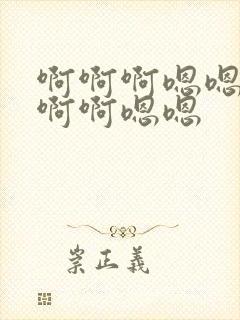 啊啊啊嗯嗯
啊啊嗯嗯
崇正義